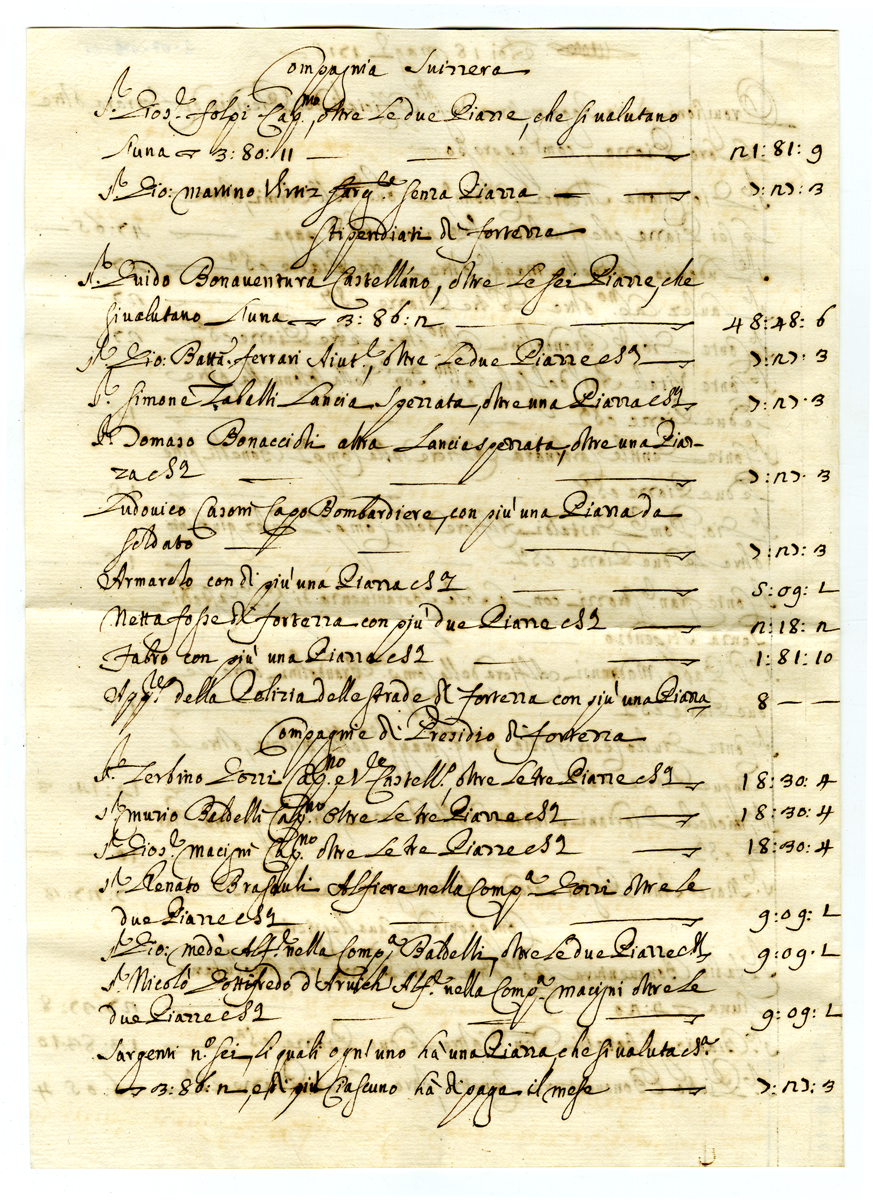 Compagnia Svizzera
S.r Gios.e folpi Cap.no, oltre Le due Piazze, che si valutano
L'una 3: 80: 11 21: 81: 9
S.r Gio: Martino Sarg.te senza Piazza 7: 27: 3
Stipendiati di fortezza
S.r Guido Bonaventura Castellano, oltre Le sei Piazze, che
si valutano L'una 3: 86: 2 48: 48: 6
S.r Gio: Batt.a ferrari Aiut.e, oltre Le due Piazze c.s.a 7: 27: 3
S.r Simone Zabelli Lancia Spezzata, oltre una Piazza c.s.a 7: 27: 3
S.r Tomaso Bonaccioli altra Lancia spezzata, oltre una Piaz-
za c.s.a 7: 27: 3
Ludovico Casoni Capo Bombardiere, con più una Piazza da
soldato 7: 27: 3
Armarolo con di più una Piazza c.s.a 5: 09: 1
Netta fosse di fortezza con più due Piazze c.s.a 2: 18: 2
Fabro con più una Piazza c.s.a 1: 81: 10
App.re della Pulizia delle strade di fortezza con più una Piazza 8 — —
Compagnie di Presidio di fortezza
S.r Zerbino Torri Cap.no, e V. Castell.o, oltre Le tre Piazze c.s.a 18: 30: 4
S.r Muzio Baldelli Cap.no oltre Le tre Piazze c.s.a 18: 30: 4
S.r Gios.e Macigni Cap.no oltre Le tre Piazze c.s.a 18: 30: 4
S.r Renato Alfiere nella Comp.a Torri oltre Le
due Piazze c.s.a 9: 09: 1
S.r Gio: Medè Alf.e nella Comp.a Baldelli, oltre Le due Piazze c.s.a 9: 09: 1
S.r Nicolò Gottifredo d'Arvich Alf.e nella Comp.a Macigni oltre Le
due Piazze c.s.a 9: 09: 1
Sargenti n.o sei, li quali ogn'uno hà una Piazza, che si valuta c.s.a
3: 86: 2, e di più Ciascuno hà di paga il mese 7: 27: 3